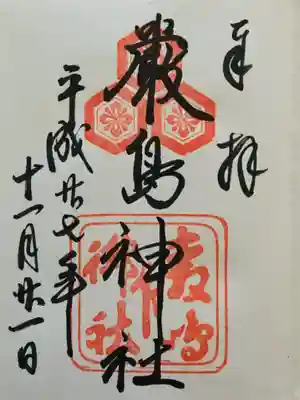 奉拝
厳島神社
平成廿七年
十一月廿一日
厳島
神社